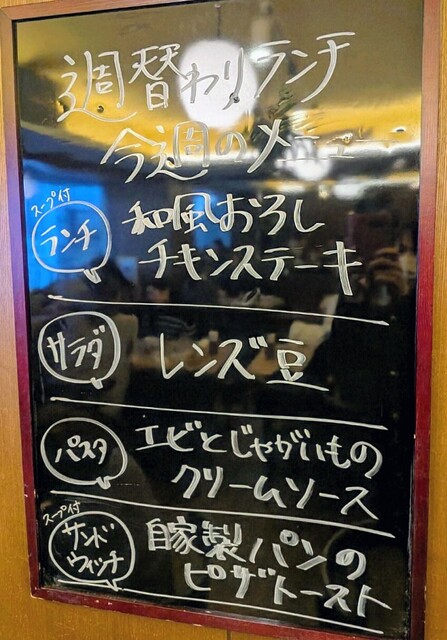 週替わりランチ
今週のメニュー
スープ付
ランチ
和風おろし
チキンステーキ
サラダ
レンズ豆
パスタ
エビとじゃがいもの
クリームソース
スープ付
サンド
ウィッチ
自家製パンの
ピザトースト